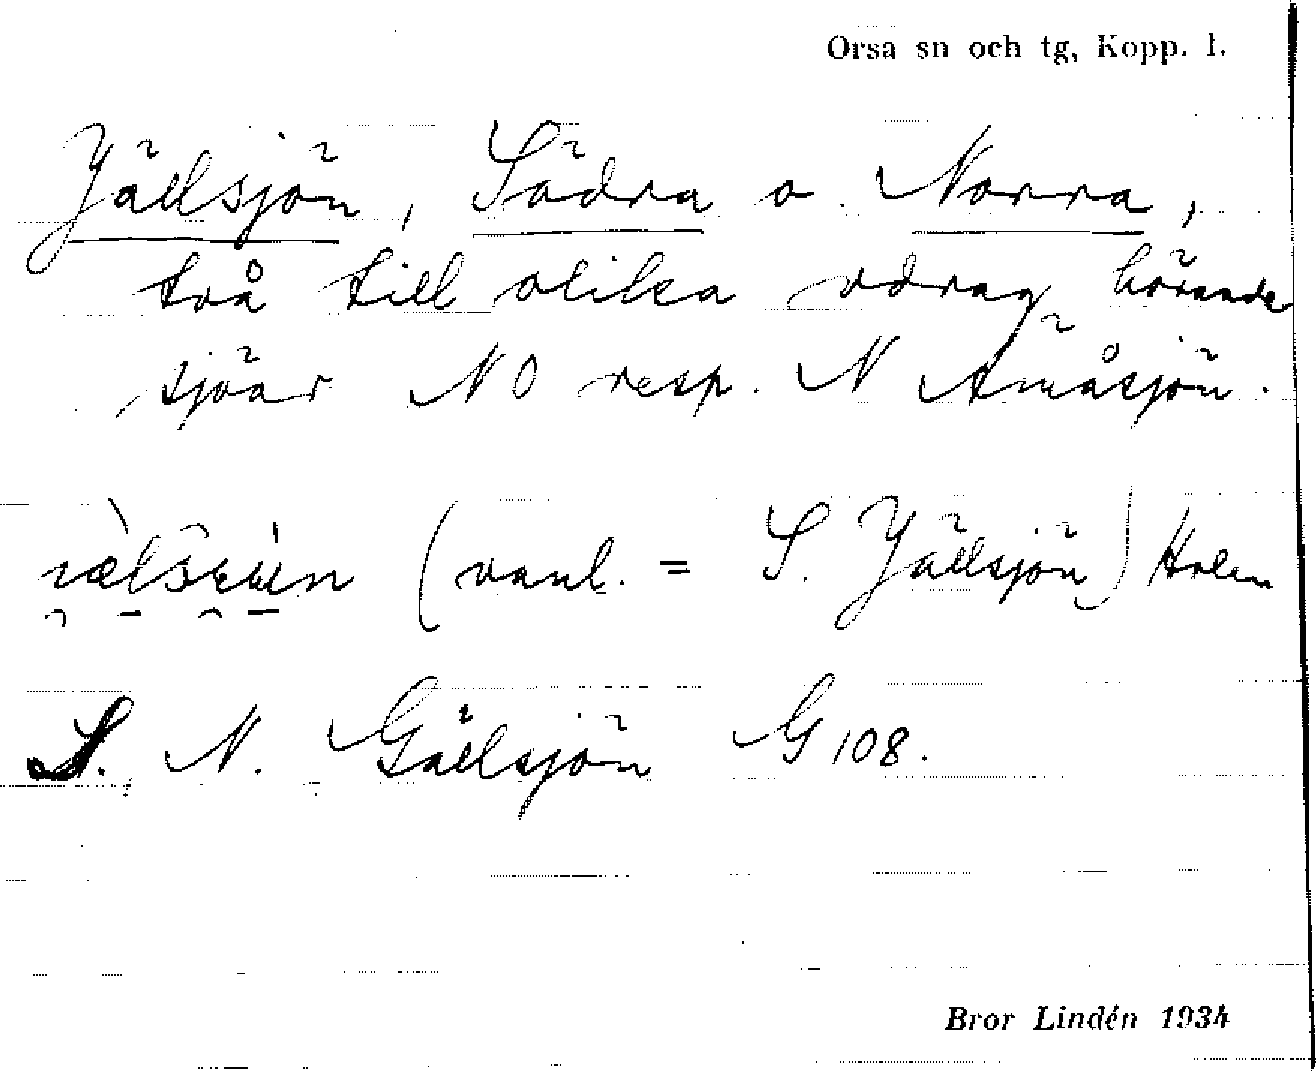 Orsa sn och tg, Kopp. l.
Jällsjön, Södra o. Norra,
två till olika vdrag hörande
sjöar NO resp. N Ämåsjön.
(vanl. = S. Jällsjön) Holen
S. N. Gällsjön G 108.
Bror Lindén 1934